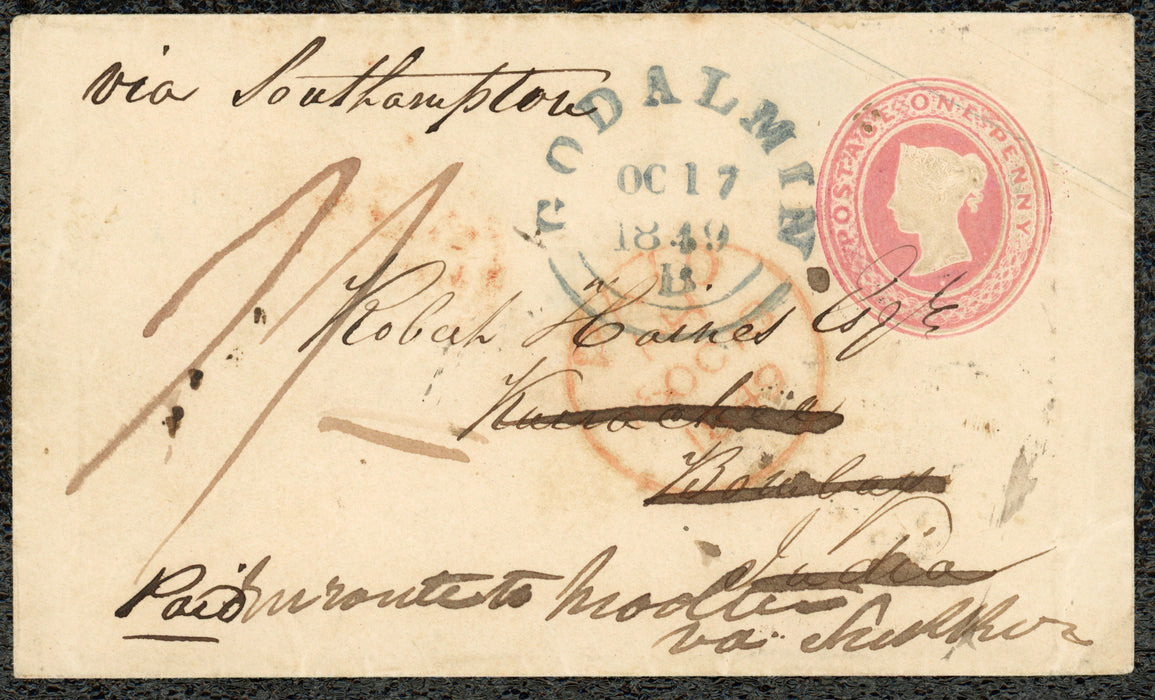 via Southampton
GODALMIN
OC 17
1849
POSTAGE ONE PENNY
PAID
OC
1849
1/
Robert Haines Esqre
Kurrachee
Bombay
India
Paid
en route to Mooltan
via Sukkur